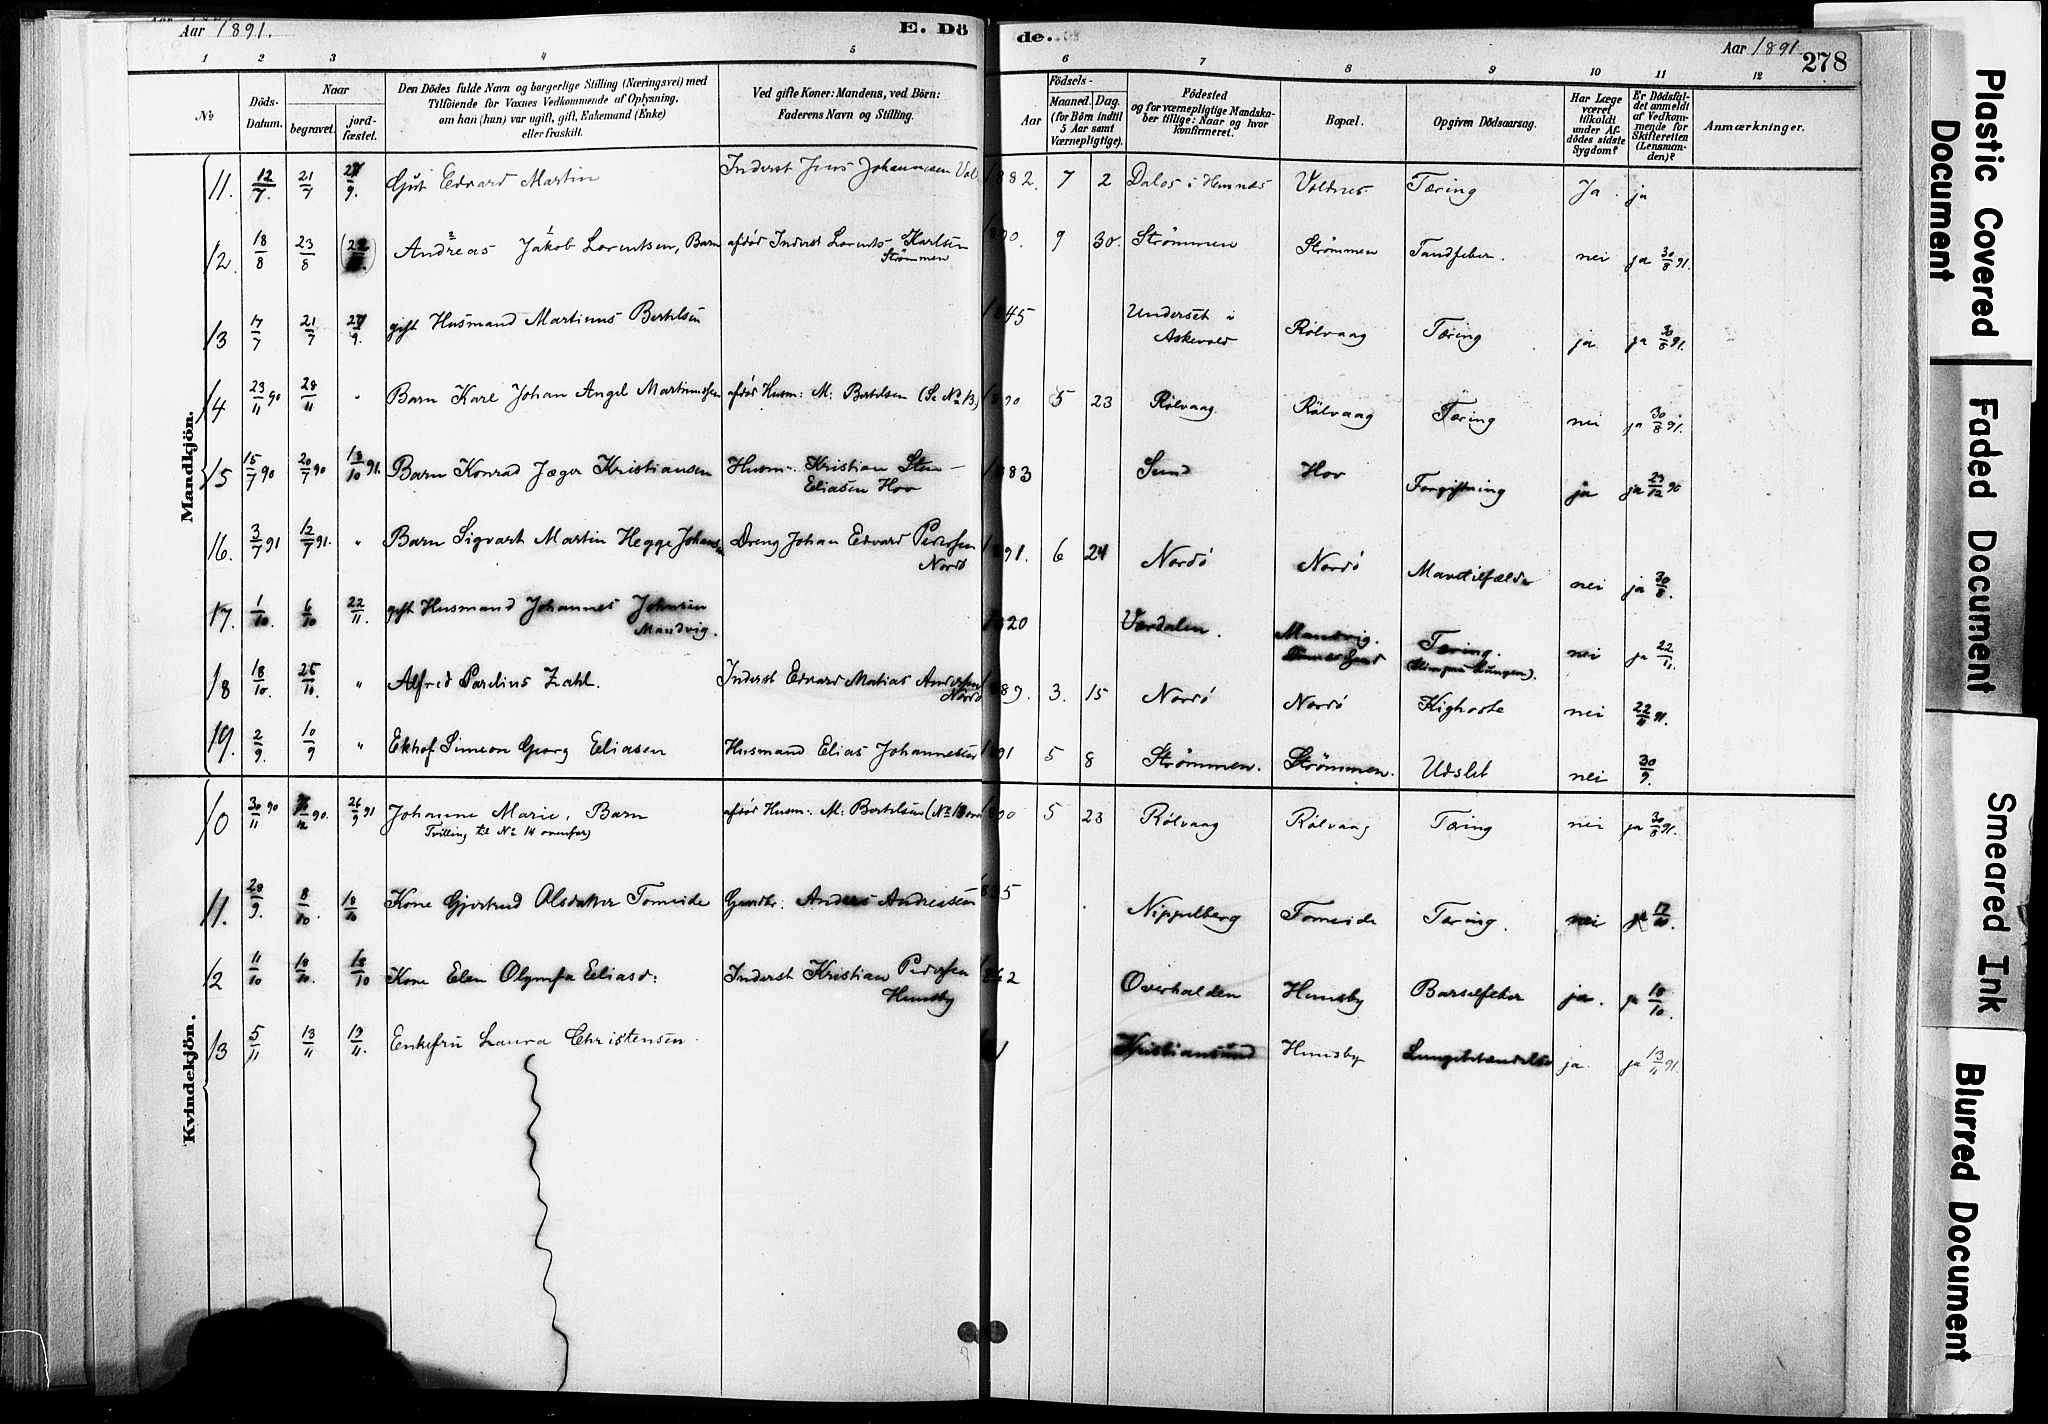 Aar 1891.
E. Dö
de.
Aar 1891
278
1 2 3 4 5 6 7 8 9 10 11 12
№
Döds-Datum.
Naar
begravet.
jord-fæstet.
Den Dödes fulde Navn og borgerlige Stilling (Næringsvei) med
Tilföiende for Voxnes Vedkommende af Oplysning,
om han (hun) var ugift, gift, Enkemand (Enke)
eller fraskilt.
Ved gifte Koner: Mandens, ved Börn:
Faderens Navn og Stilling.
Födsels-
Aar
Maaned. Dag.
(for Börn indtil
5 Aar samt
Værnepligtige).
Födested
og for værnepligtige Mandska-
ber tillige: Naar og hvor
konfirmeret.
Bopæl.
Opgiven Dödsaarsag.
Har Læge
været
tilkaldt
under Af-
dödes sidste
Sygdom?
Er Dödsfal-
det anmeldt
af Vedkom-
mende for
Skifteretten
(Lensman-
den)?
Anmærkninger.
Mandkjön.
11. 12/7. 21/7 9. Gut Edvard Martin Inderst Jens Johannesen 1882. 7 2 Dalos i Hemnes Valtnes Tæring Ja. ja
12. 18/8 23/8 Andreas Jakob Lorentsen, Barn afdöd Inderst Lorents Karlsen 90. 9 30. Strømmen Strømmen Tandfeber. nei ja 30/8 91.
Strømmen
13 17/7 21/7 9. gift Husmand Martinus Bertelsen 1845 Underset i Rölvaag Tæring ja ja 30/8 91.
Askevold
14 23/11 90 28/11 " Barn Karl Johan Angel Martinussen afdöd Husm: M: Bertelsen (Se No 13) 90 5 23 Rölvaag. Rölvaag Tæring nei ja 30/8 91.
15 15/7 90 20/7 90 18/10 91. Barn Konrad Jæger Kristiansen Husm: Kristian Sten- 1883 Sund Hov Forgiftning ja ja 23/12 90
Eliasen Hov
16. 3/7 91 12/7 91. " Barn Sigvart Martin Hegge Johansen Dreng Johan Edvard Pedersen 1891. 6 24 Nordö Nordö Mavetilfælde nei ja 30/8.
Nordö
17. 1/10. 6/10 22/11. gift Husmand Johannes Johnsen 1820 Værdalen. Mandvig. Tæring. nei ja 22/11.
Mandvig.
18 18/10. 25/10. " Alfred Parelius Zahl. Inderst Edvard Matias Andersen 89. 3. 15 Nordö Nordö Kighoste nei 22/11 91.
Nordö
19. 2/9. 10/9 " Ekhof Simeon Georg Eliasen Husmand Elias Johannesen 1891 5 8 Strømmen. Strømmen. Udslet nei 30/9.
Kvindekjön.
10 30/11 90 12 90. 26/9 91 Johanne Marie, Barn afdöd Husm: M: Bertelsen (No 13 90 5 23 Rölvaag Rölvaag Tæring nei ja 30/8 91.
Tvilling til No 14 ovenfor)
11. 28/9. 8/10. 18/10 Kone Gjertrud Olsdatter Tomeide Gaardbr: Anders Andreasen 35 Nippelberg Tomeide Tæring. nei ja 17/10.
12 11/10 18/10. 18/10 Kone Elen Olympia Eliasd: Inderst Kristian Pedersen 1862 Overhalden Hemsby Barselfeber ja. ja 18/10.
Hemsby
13 5/11 13/11 13/11. Enkefru Laura Christensen. Kristiansund Hemsby Lungebetændelse ja. ja 13/11 91.
Plastic Covered
Document
Faded Document
Smeared Ink
Blurred Document